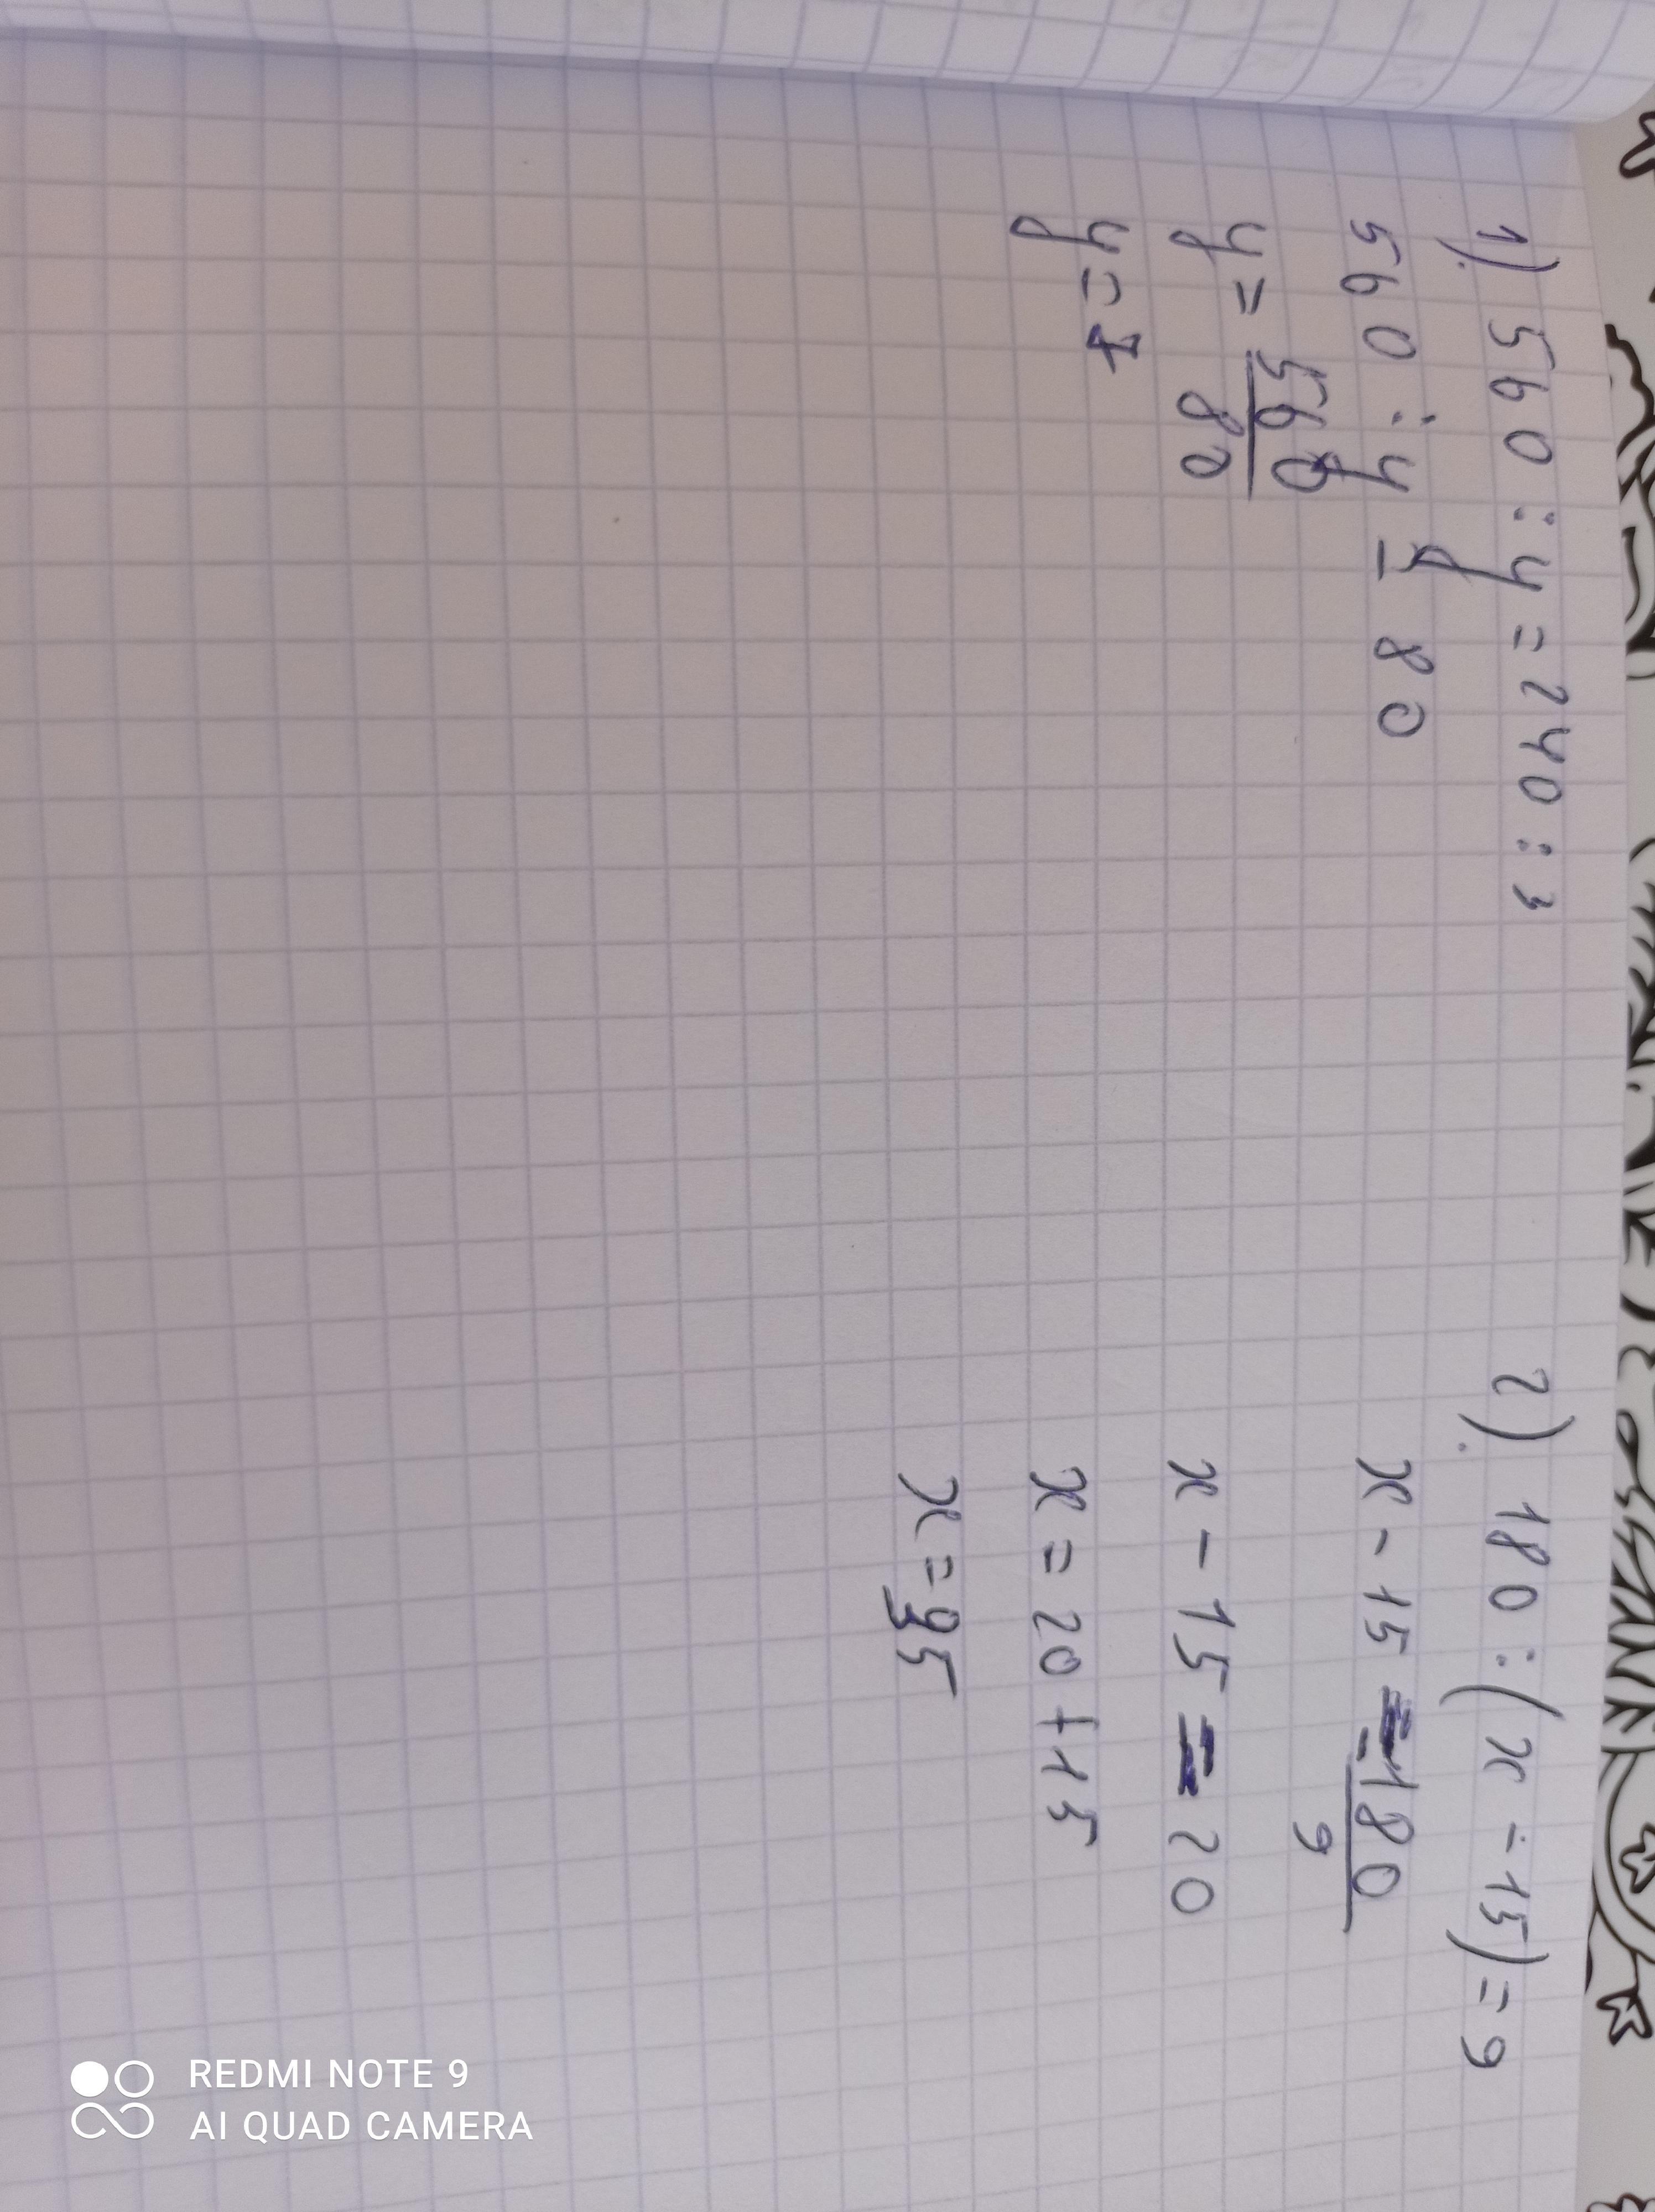 1). 560 : y = 240 : 3
560 : y = 80
y = 560
80
y = 7
2). 180 : (x - 15) = 9
x - 15 = 180
9
x - 15 = 20
x = 20 + 15
x = 35
REDMI NOTE 9
AI QUAD CAMERA